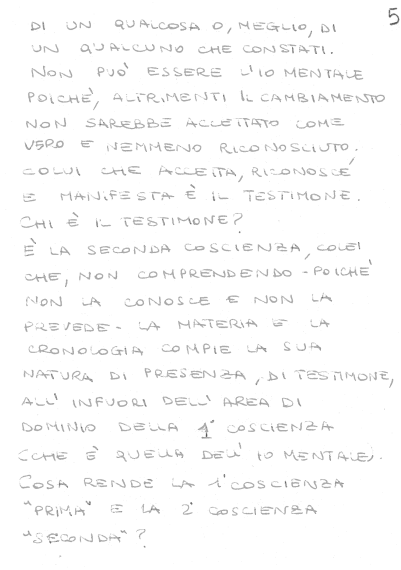 5
DI UN QUALCOSA O, MEGLIO, DI
UN QUALCUNO CHE CONSTATI.
NON PUÒ ESSERE L'IO MENTALE
POICHÈ, ALTRIMENTI IL CAMBIAMENTO
NON SAREBBE ACCETTATO COME
VERO E NEMMENO RICONOSCIUTO.
COLUI CHE ACCETTA, RICONOSCE
E MANIFESTA È IL TESTIMONE.
CHI È IL TESTIMONE?
È LA SECONDA COSCIENZA, COLEI
CHE, NON COMPRENDENDO - POICHÈ
NON LA CONOSCE E NON LA
PREVEDE - LA MATERIA E LA
CRONOLOGIA COMPIE LA SUA
NATURA DI PRESENZA, DI TESTIMONE,
ALL'INFUORI DELL'AREA DI
DOMINIO DELLA 1° COSCIENZA
(CHE È QUELLA DELL'IO MENTALE).
COSA RENDE LA 1° COSCIENZA
"PRIMA" E LA 2° COSCIENZA
"SECONDA"?